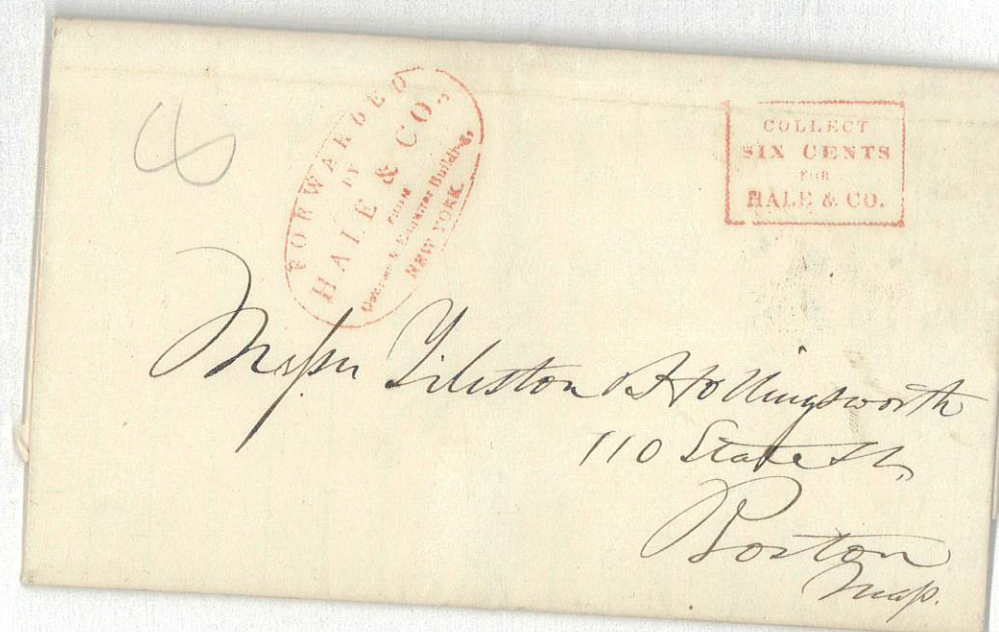 FORWARDED
BY
HALE & CO.,
FROM
Building,
NEW YORK.
COLLECT
SIX CENTS
FOR
HALE & CO.
Messrs Tileston & Hollingsworth
110 State St
Boston
Mass.